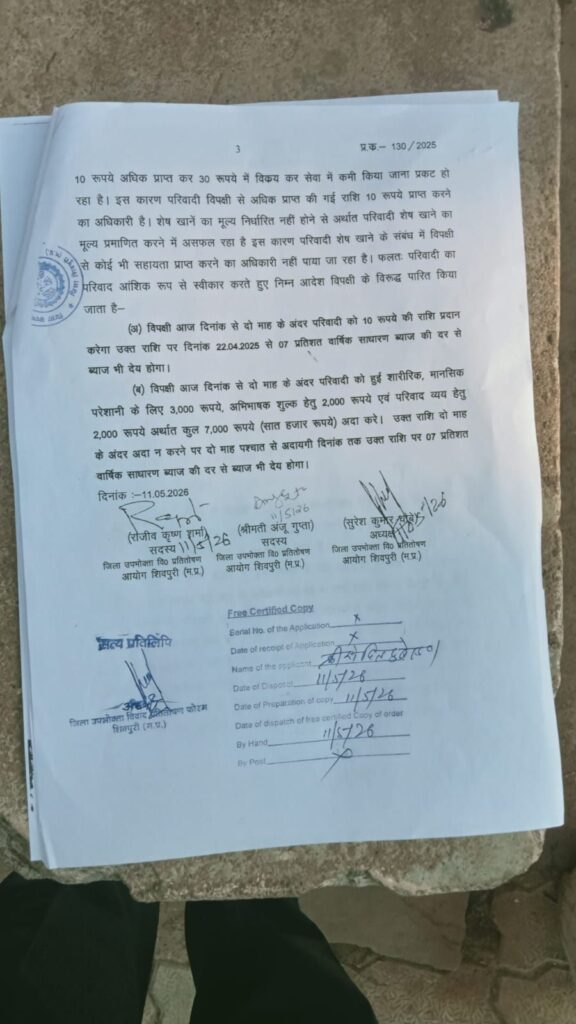 3
प्र.क.– 130/2025
10 रूपये अधिक प्राप्त कर 30 रूपये में विक्रय कर सेवा में कमी किया जाना प्रकट हो
रहा है। इस कारण परिवादी विपक्षी से अधिक प्राप्त की गई राशि 10 रूपये प्राप्त करने
का अधिकारी है। शेष खानें का मूल्य निर्धारित नही होने से अर्थात परिवादी शेष खाने का
मूल्य प्रमाणित करने में असफल रहा है इस कारण परिवादी शेष खाने के संबंध में विपक्षी
से कोई भी सहायता प्राप्त करने का अधिकारी नही पाया जा रहा है। फलतः परिवादी का
परिवाद आंशिक रूप से स्वीकार करते हुए निम्न आदेश विपक्षी के विरूद्ध पारित किया
जाता है–
(अ) विपक्षी आज दिनांक से दो माह के अंदर परिवादी को 10 रूपये की राशि प्रदान
करेगा उक्त राशि पर दिनांक 22.04.2025 से 07 प्रतिशत वार्षिक साधारण ब्याज की दर से
ब्याज भी देय होगा।
(ब) विपक्षी आज दिनांक से दो माह के अंदर परिवादी को हुई शारीरिक, मानसिक
परेशानी के लिए 3,000 रूपये, अभिभाषक शुल्क हेतु 2,000 रूपये एवं परिवाद व्यय हेतु
2,000 रूपये अर्थात कुल 7,000 रूपये (सात हजार रूपये) अदा करे। उक्त राशि दो माह
के अंदर अदा न करने पर दो माह पश्चात से अदायगी दिनांक तक उक्त राशि पर 07 प्रतिशत
वार्षिक साधारण ब्याज की दर से ब्याज भी देय होगा।
दिनांक :–11.05.2026
11/5/26
(राजीव कृष्ण शर्मा) (श्रीमती अंजू गुप्ता) (सुरेश कुमार
सदस्य 11/5/26 सदस्य अध्यक्ष
जिला उपभोक्ता वि0 प्रतितोषण जिला उपभोक्ता वि0 प्रतितोषण जिला उपभोक्ता वि0 प्रतितोषण
आयोग शिवपुरी (म.प्र.) आयोग शिवपुरी (म.प्र.) आयोग शिवपुरी (म.प्र.)
Free Certified Copy
Serial No. of the Application x
Date of receipt of Application x
Name of the applicant
Date of Disposal 11/5/26
Date of Preparation of copy 11/5/26
Date of dispatch of free certified Copy of order
By Hand 11/5/26
By Post x
सत्य प्रतिलिपि
जिला उपभोक्ता विवाद प्रतितोषण फोरम
शिवपुरी (म.प्र.)